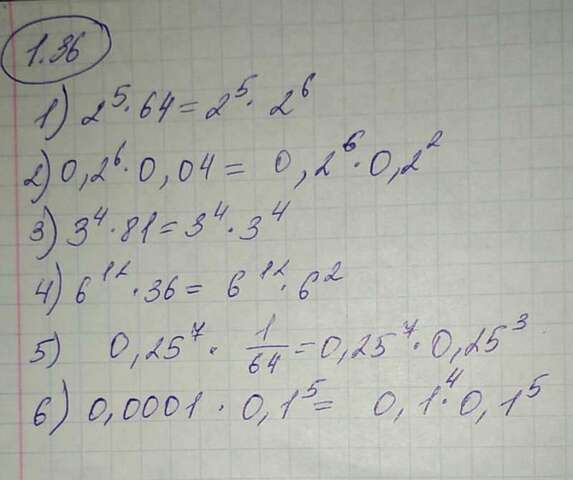 1.36
1) 2⁵·64=2⁵·2⁶
2) 0,2⁶·0,04= 0,2⁶·0,2²
3) 3⁴·81=3⁴·3⁴
4) 6¹²·36= 6¹²·6²
5) 0,25⁷· 1/64=0,25⁷·0,25³
6) 0,0001·0,1⁵= 0,1⁴·0,1⁵